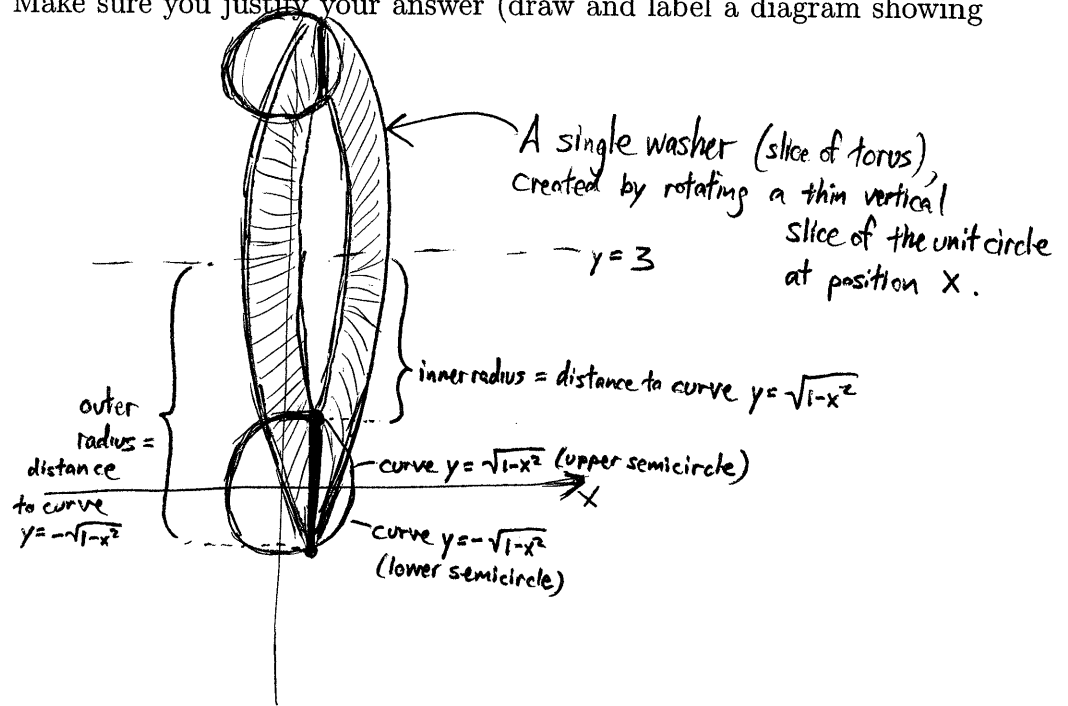 Make sure you justify your answer (draw and label a diagram showing
A single washer (slice of torus),
created by rotating a thin vertical
slice of the unit circle
at position X.
y=3
inner radius = distance to curve y=√1-x²
outer
radius =
distance
to curve
y=-√1-x²
curve y=√1-x² (upper semicircle)
X
curve y=-√1-x²
(lower semicircle)